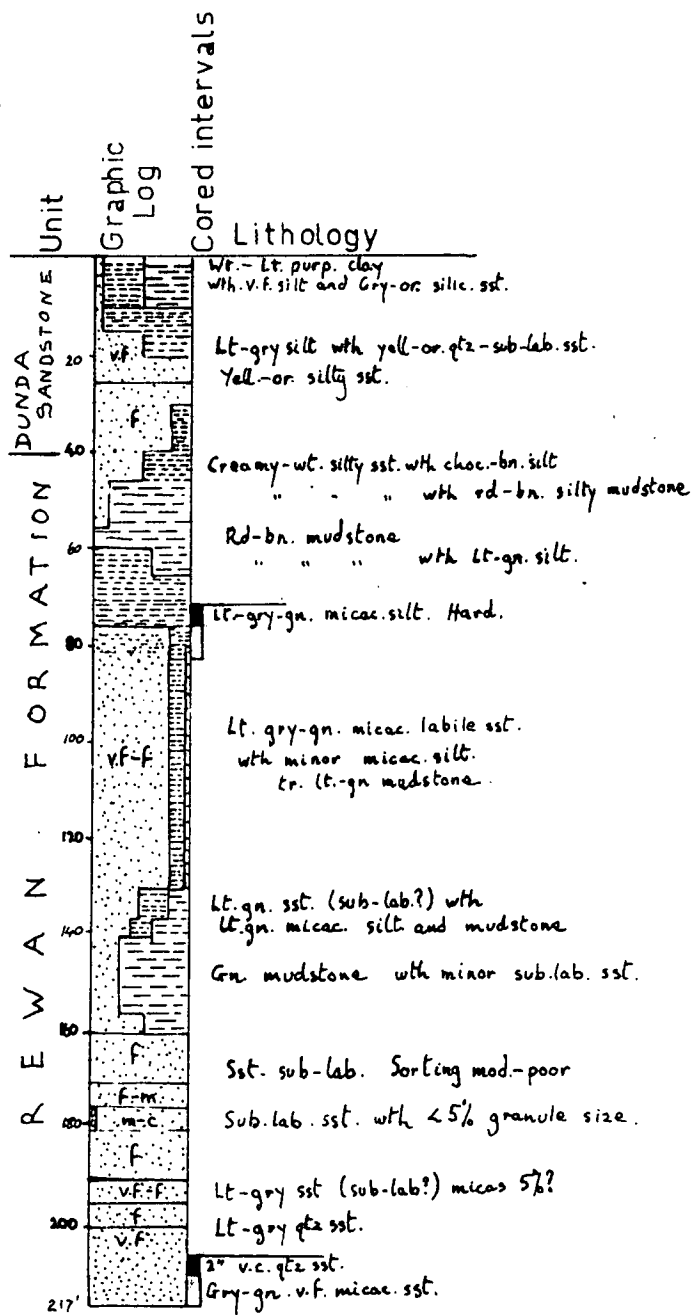 Unit
Graphic
Log
Cored intervals
Lithology
DUNDA
SANDSTONE
REWAN FORMATION
Wt.- Lt. purp. clay
wth. v.f. silt and Gry-or. silic. sst.
v.f.
20
Lt-gry silt wth yell-or. qtz-sub-lab. sst.
Yell.-or silty sst.
f
40
Creamy-wt. silty sst. wth choc.-bn. silt
" " " wth rd-bn. silty mudstone
Rd-bn. mudstone
60
" " " wth Lt-gn. silt.
Lt-gry-gn. micac. silt. Hard.
80
100
v.f-f
Lt. gry-gn. micac. labile sst.
wth minor micac. silt.
tr. lt.-gn mudstone
120
Lt. gn. sst. (sub-lab.?) wth
Lt. gn. micac. silt and mudstone
140
Gn. mudstone wth minor sub.lab. sst.
160
f
Sst. sub-lab. Sorting mod.-poor
f-m
m-c
180
Sub.lab. sst. wth <5% granule size.
f
v.f-f
Lt-gry sst (sub-lab?) micas 5%?
f
200
Lt-gry qtz sst.
v.f
2" v.c. qtz sst.
Gry-gn. v.f. micac. sst.
217'